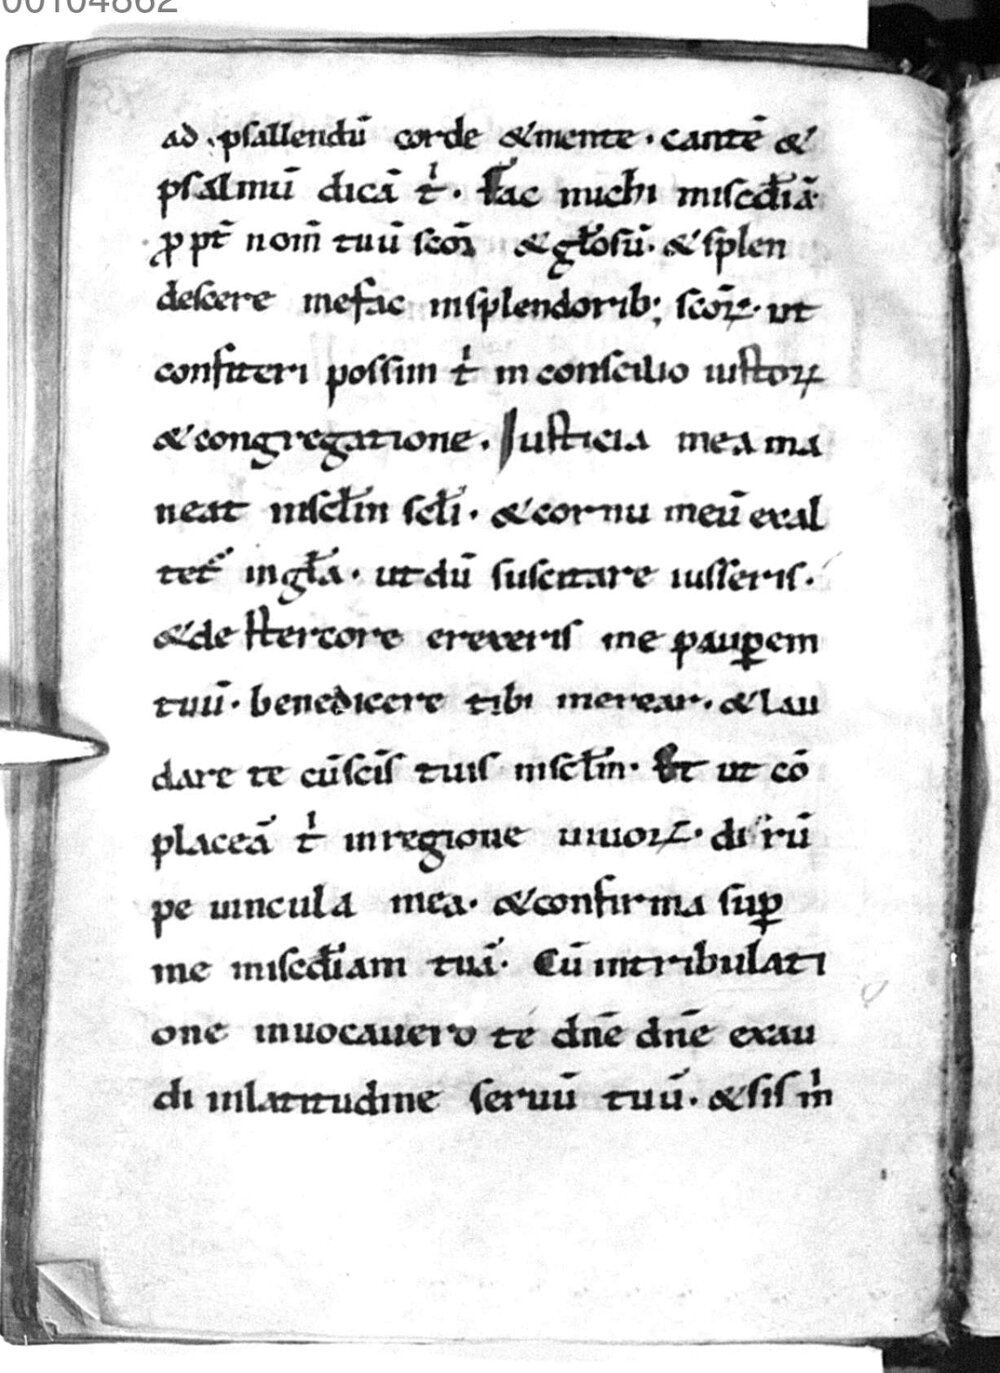 00104862
ad psallendū corde &mente. cantē &
psalmū dicā t̄ı. Fac michi miscđiā
ꝓpt̄ nom̄ tuū scōꝝ & gl̄osū. &splen
descere mefac insplendorib; scōꝝ. ut
confiteri possim t̄ı in conscilio iustoꝝ
&congregatione. Iusticia mea ma
neat inscl̄m scl̄i. &cornu meū exal
tet̄ ingl̄a. utdū suscitare iusseris.
&de stercore erexeris me pauꝑem
tuū. benedicere tibi merear. &lau
dare te cūscīs tuis inscl̄m. Et ut cō
placeā t̄ı inregione uiuoꝝ. dirū
pe uincula mea. &confirma suꝑ
me miscđiam tuā. Cū intribulati
one inuocauero te dn̄e dn̄e exau
di inlatitudine seruū tuū. &sis m̄ı